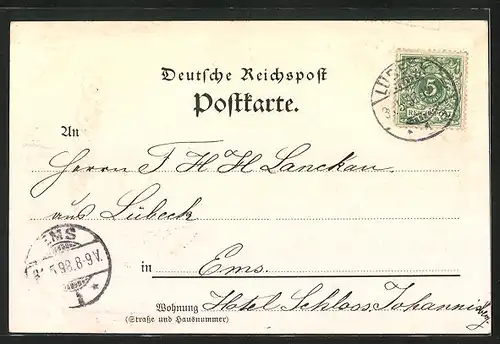 Deutsche Reichspost
Postkarte.
LÜBECK
5
An
Herrn F. H. H. Lanckau
aus Lübeck
EMS
5.98.8-9V.
in Ems.
Wohnung Hotel Schloss Johannisberg
(Straße und Hausnummer)